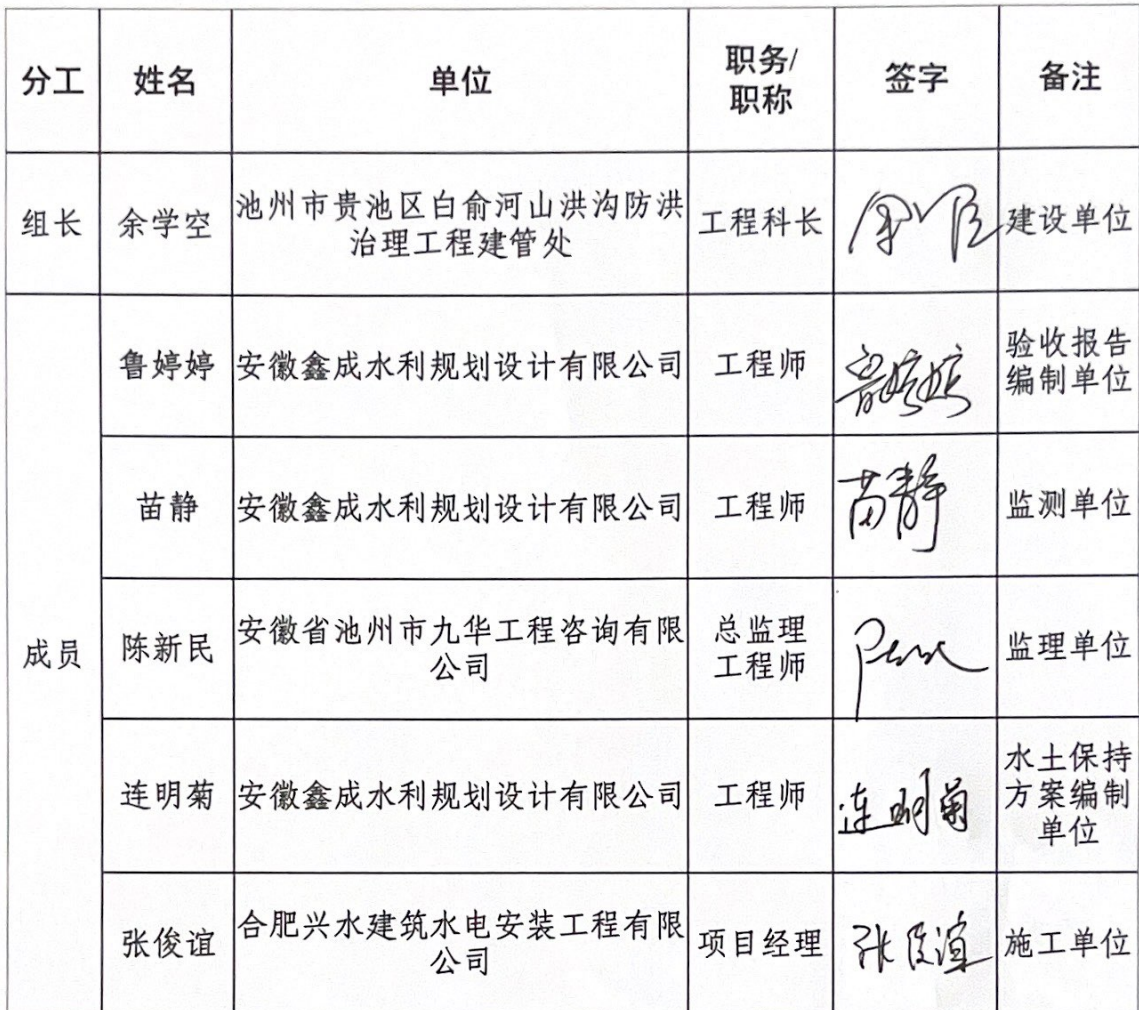 分工 姓名 单位 职务/职称 签字 备注
组长 余学空 池州市贵池区白俞河山洪沟防洪治理工程建管处 工程科长 建设单位
成员
鲁婷婷 安徽鑫成水利规划设计有限公司 工程师 鲁婷婷 验收报告编制单位
苗静 安徽鑫成水利规划设计有限公司 工程师 苗静 监测单位
陈新民 安徽省池州市九华工程咨询有限公司 总监理工程师 监理单位
连明菊 安徽鑫成水利规划设计有限公司 工程师 连明菊 水土保持方案编制单位
张俊谊 合肥兴水建筑水电安装工程有限公司 项目经理 张俊谊 施工单位